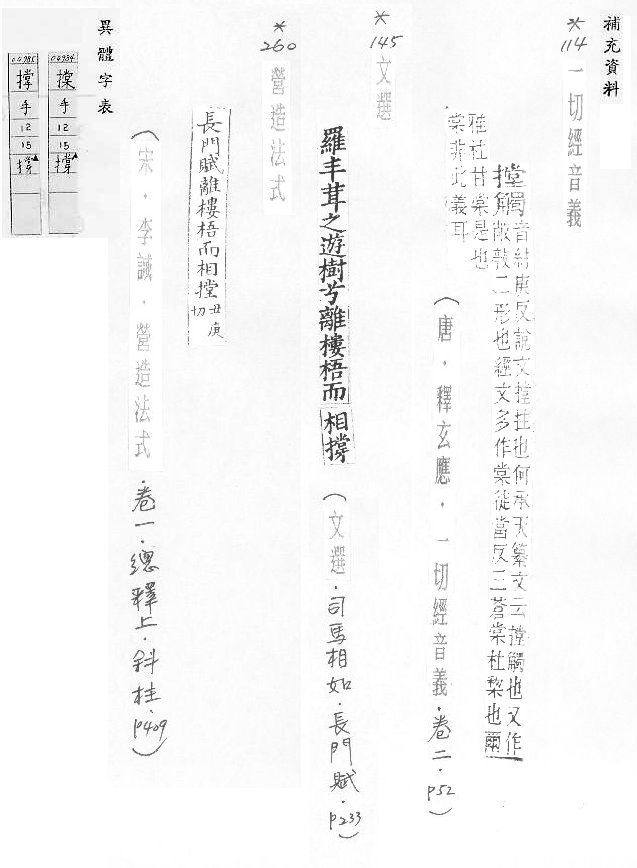 補充資料
*114 一切經音義
摚觸
音紂庚反說文摚拄也何承天纂文云摚觸也又作
敞敦二形也經文多作棠徒當反三蒼棠杜棃也爾
雅杜甘棠是也
棠非此義耳
(唐．釋玄應．一切經音義．卷二．P52)
*145 文選
羅丰茸之遊樹兮離樓梧而相撐
(文選．司馬相如．長門賦．P233)
*260 營造法式
長門賦離樓梧而相摚
丑庚
切
(宋．李誡．營造法式．卷一．總釋上．斜柱．P409)
異體字表
04984
手
12
15
撐
04985
撐
手
12
15
撐